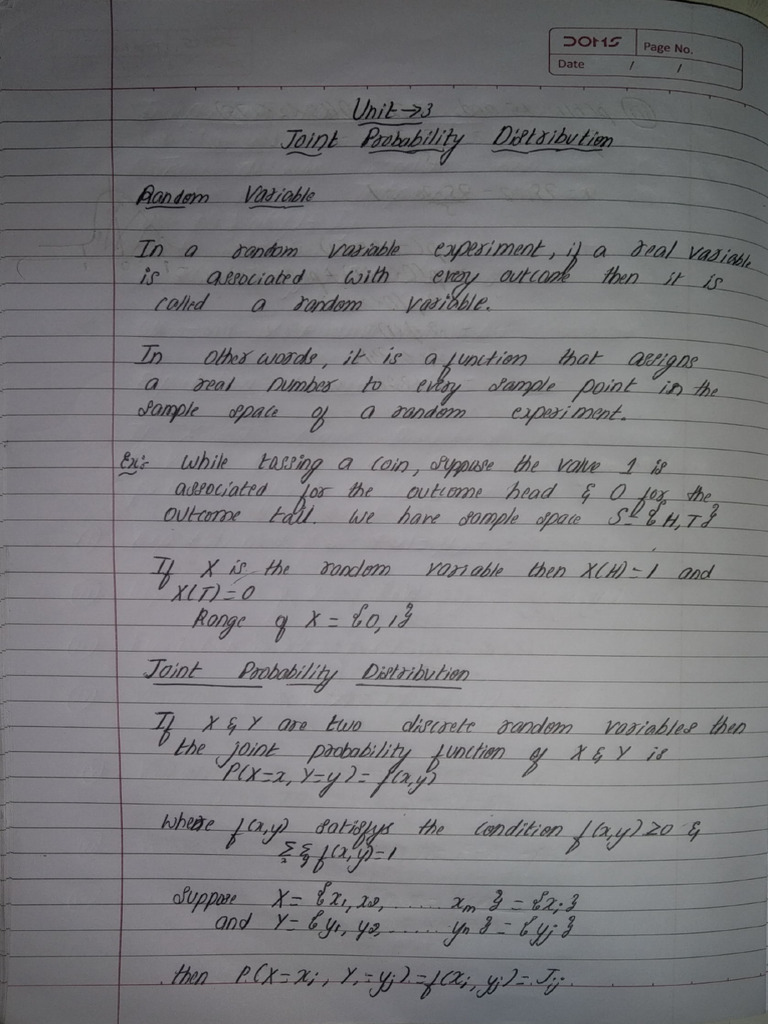 DOMS
Page No.
Date / /
Unit → 3
Joint Probability Distribution
Random Variable
In a random variable experiment, if a real variable
is associated with every outcome then it is
called a random variable.
In other words, it is a function that assigns
a real number to every sample point in the
sample space of a random experiment.
Ex:- While tossing a coin, suppose the value 1 is
associated for the outcome head & 0 for the
outcome tail. We have sample space S = {H, T}
If X is the random variable then X(H)=1 and
X(T)=0
Range of X = {0,1}
Joint Probability Distribution
If X & Y are two discrete random variables then
the joint probability function of X & Y is
P(X=x, Y=y) = f(x,y)
where f(x,y) satisfys the condition f(x,y) ≥ 0 &
Σ Σ f(x,y)=1
Suppose X = {x1, x2, ...... xm } = {xi}
and Y = {y1, y2, ...... yn } = {yj}
then P(X=xi, Y=yj) = f(xi, yj) = Jij.